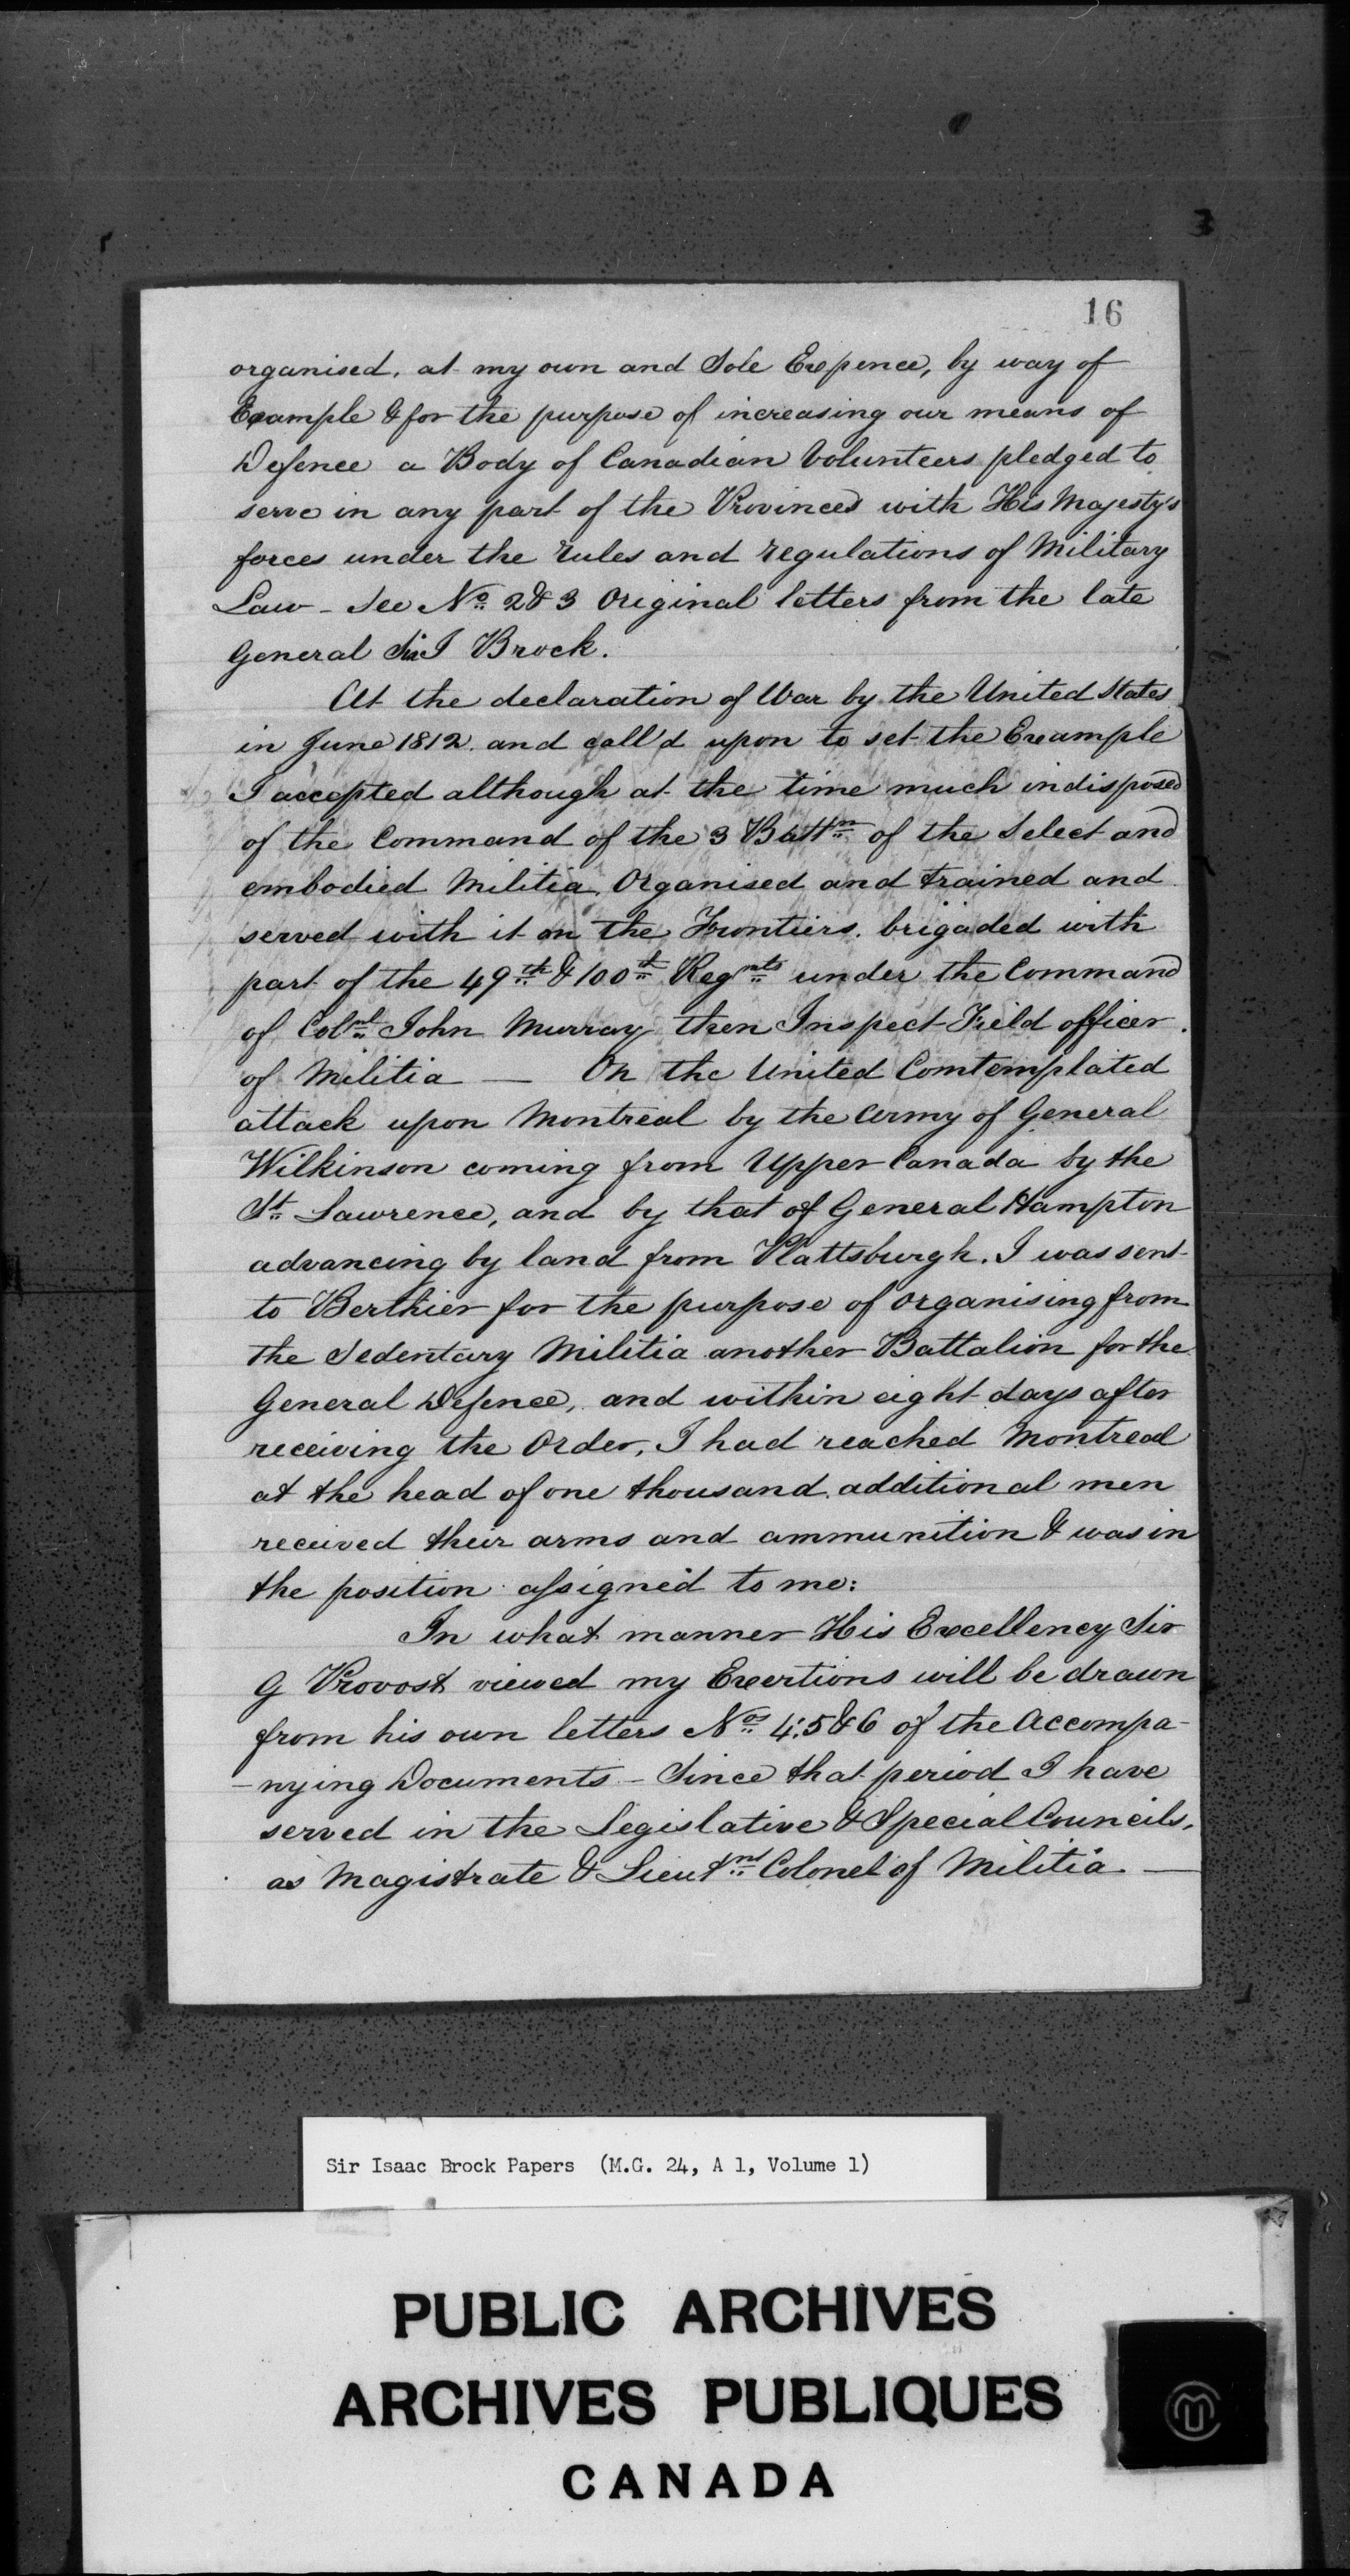 16
organised, at my own and Sole Expence, by way of
Example & for the purpose of increasing our means of
Defence a Body of Canadian Volunteers pledged to
serve in any part of the Provinces with His Majesty's
forces under the rules and regulations of Military
Law - See No. 2 & 3 Original letters from the late
General Sir I Brock.
At the declaration of War by the United States
in June 1812. and call'd upon to set the Example
I accepted although at the time much indisposed
of the Command of the 3 Battn of the Select and
embodied Militia. Organised and trained and
served with it on the Frontiers. brigaded with
part of the 49th & 100th Regmts under the Command
of Colnl John Murray then Inspect Field officer.
of Militia — On the United Comtemplated
attack upon Montreal by the Army of General
Wilkinson coming from Upper Canada by the
St. Lawrence, and by that of General Hampton
advancing by land from Plattsburgh. I was sent
to Berthier for the purpose of organising from
the Sedentary Militia another Battalion for the
General Defence, and within eight days after
receiving the Order, I had reached Montreal
at the head of one thousand additional men
received their arms and ammunition & was in
the position assigned to me:
In what manner His Excellency Sir
G Provost viewed my Exertions will be drawn
from his own letters Nos 4.5 & 6 of the Accompa-
-nying Documents - Since that period I have
served in the Legislative & Special Councils,
as Magistrate & Lieutnt Colonel of Militia —
Sir Isaac Brock Papers (M.G. 24, A 1, Volume 1)
PUBLIC ARCHIVES
ARCHIVES PUBLIQUES
CANADA